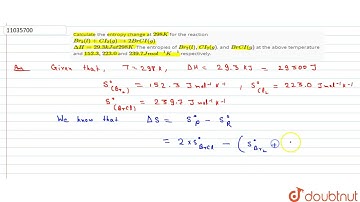 11035700
Calculate the entropy change at 298K for the reaction
Br₂(l) + Cl₂(g) → 2BrCl(g)
ΔH = 29.3kJ at 298K. The entropies of Br₂(l), Cl₂(g), and BrCl(g) at the above temperature
and 152.3, 223.0 and 239.7 J mol⁻¹ K⁻¹ respectively.
Ans Given that, T = 298 K, ΔH = 29.3 KJ = 29300 J
S°(Br₂) = 152.3 J mol⁻¹ K⁻¹, S°(Cl₂ = 223.0 J mol⁻¹ K⁻¹
S°(BrCl) = 239.7 J mol⁻¹ K⁻¹
We know that ΔS = S°P - S°R
= 2 x S°BrCl - (S°Br₂ +
doubtnut